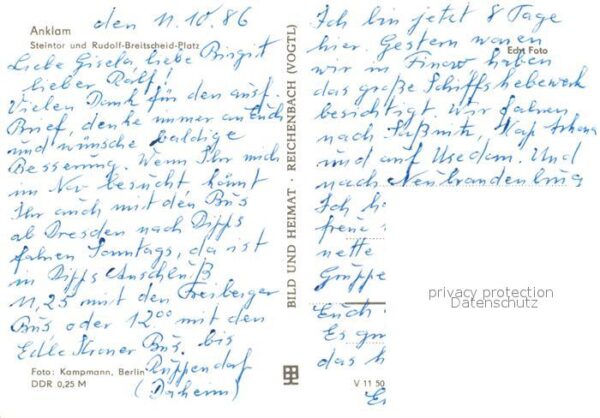 den 11.10.86
Anklam
Steintor und Rudolf-Breitscheid-Platz
Liebe Gisela, liebe Birgit
lieber Rolf!
Vielen Dank für den ausf.
Brief, denke immer an Euch
und wünsche baldige
Besserung. Wenn Ihr mich
im Nov besucht könnt
Ihr auch mit den Bus
ab Dresden nach Dipps
fahren Sonntags, da ist
in Dipps Anschluß
11,25 mit den Freiberger
Bus oder 12.00 mit den
Bus. bis
Ruppendorf
(Daheim)
Foto: Kampmann, Berlin
DDR 0,25 M
BILD UND HEIMAT · REICHENBACH (VOGTL)
Ich bin jetzt 8 Tage
hier. Gestern waren
Echt Foto
wir in Finow haben
das große Schiffshebewerk
besichtigt. Wir fahren
nach Saßnitz, Kap Arkona
und auf Usedom. Und
nach Neubrandenburg
Ich
nette
Gruppe
Euch
Es
das
V 11 50
privacy protection
Datenschutz